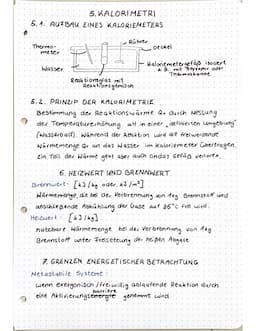 5. KALORIMETRI
5.1. AUFBAU EINES KALORIMETERS
Rührer
Thermo-
meter
Deckel
Kalorimetergefäß isoliert
z.B. mit Styropor oder
Thermoskanne
Wasser
Reaktionsglas mit
Reaktionsgemisch
5.2. PRINZIP DER KALORIMETRIE
Bestimmung der Reaktionswärme Qr durch Messung
der Temperaturerhöhung ΔT in einer „definierten Umgebung"
(Wasserbad). Während der Reaktion wird die freiwerdende
Wärmemenge Qr an das Wasser im Kalorimeter übertragen,
ein Teil der Wärme geht aber auch ans Gefäß verloren.
6. HEIZWERT UND BRENNWERT
Brennwert: [kJ/kg oder kJ/m³]
Wärmemenge, die bei der Verbrennung von 1kg Brennstoff und
anschließende Abkühlung der Gase auf 25°C frei wird.
Heizwert: [kJ/kg]
nutzbare Wärmemenge bei der Verbrennung von 1kg
Brennstoff unter Freisetzung der heißen Abgase
7. GRENZEN ENERGETISCHER BETRACHTUNG
Metastabile Systeme:
wenn exergonisch/freiwillig ablaufende Reaktion durch
eine Aktivierungsenergie barriere gehemmt wird